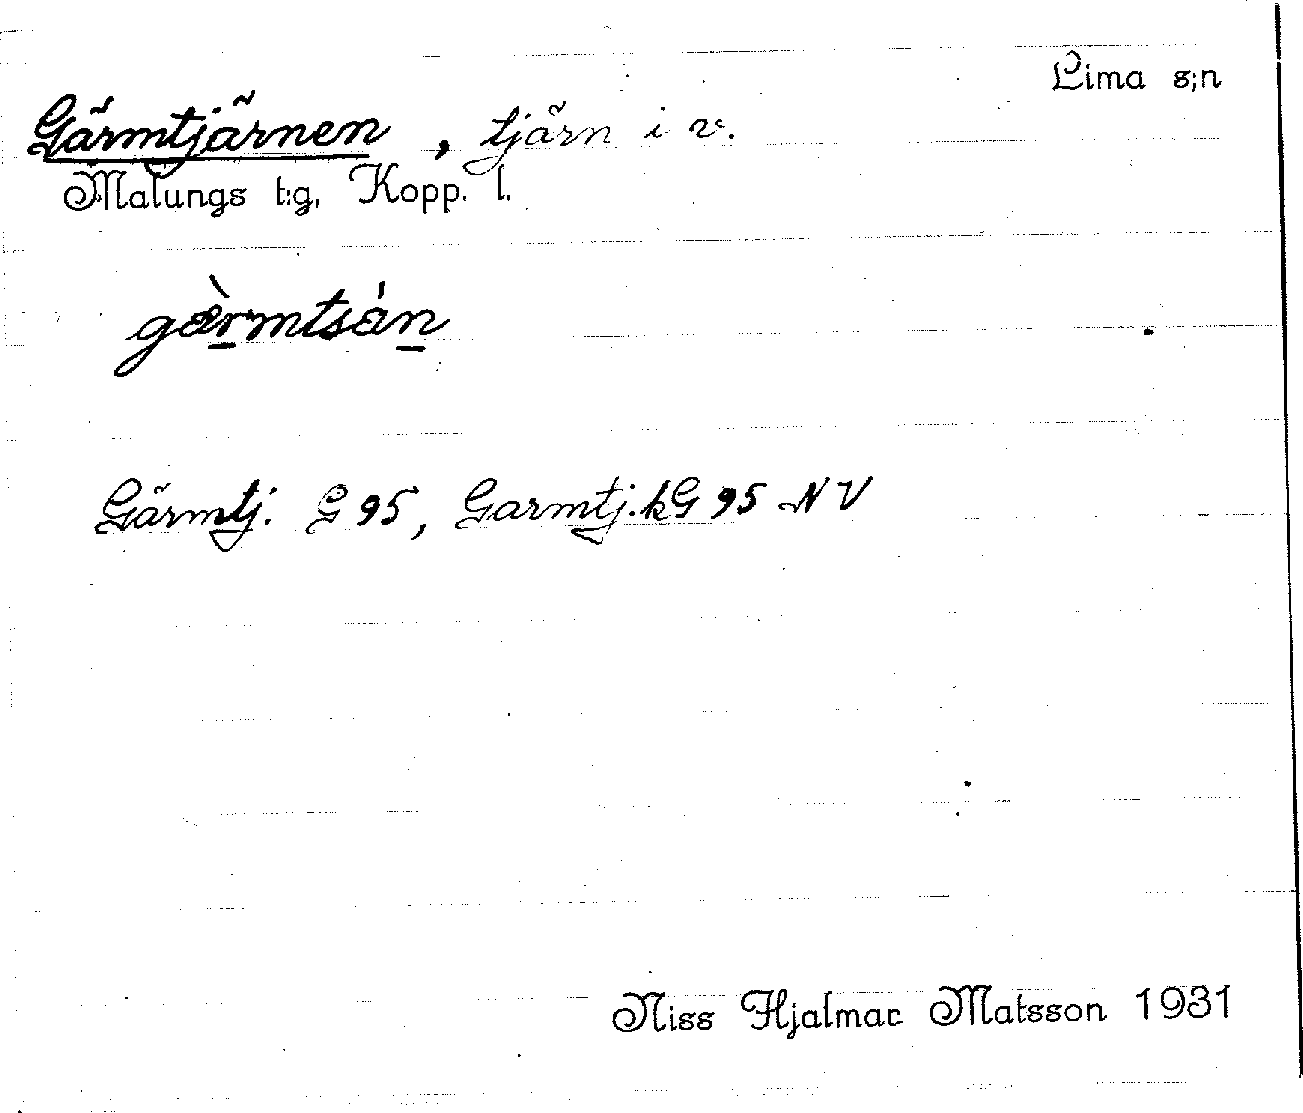 Lima s;n
Gärmtjärnen, tjärn i v.
Malungs t:g, Kopp. l.
gæ̀rmtsán
Gärmtj. G 95, Garmtj. kG 95 NV
Niss Hjalmar Matsson 1931